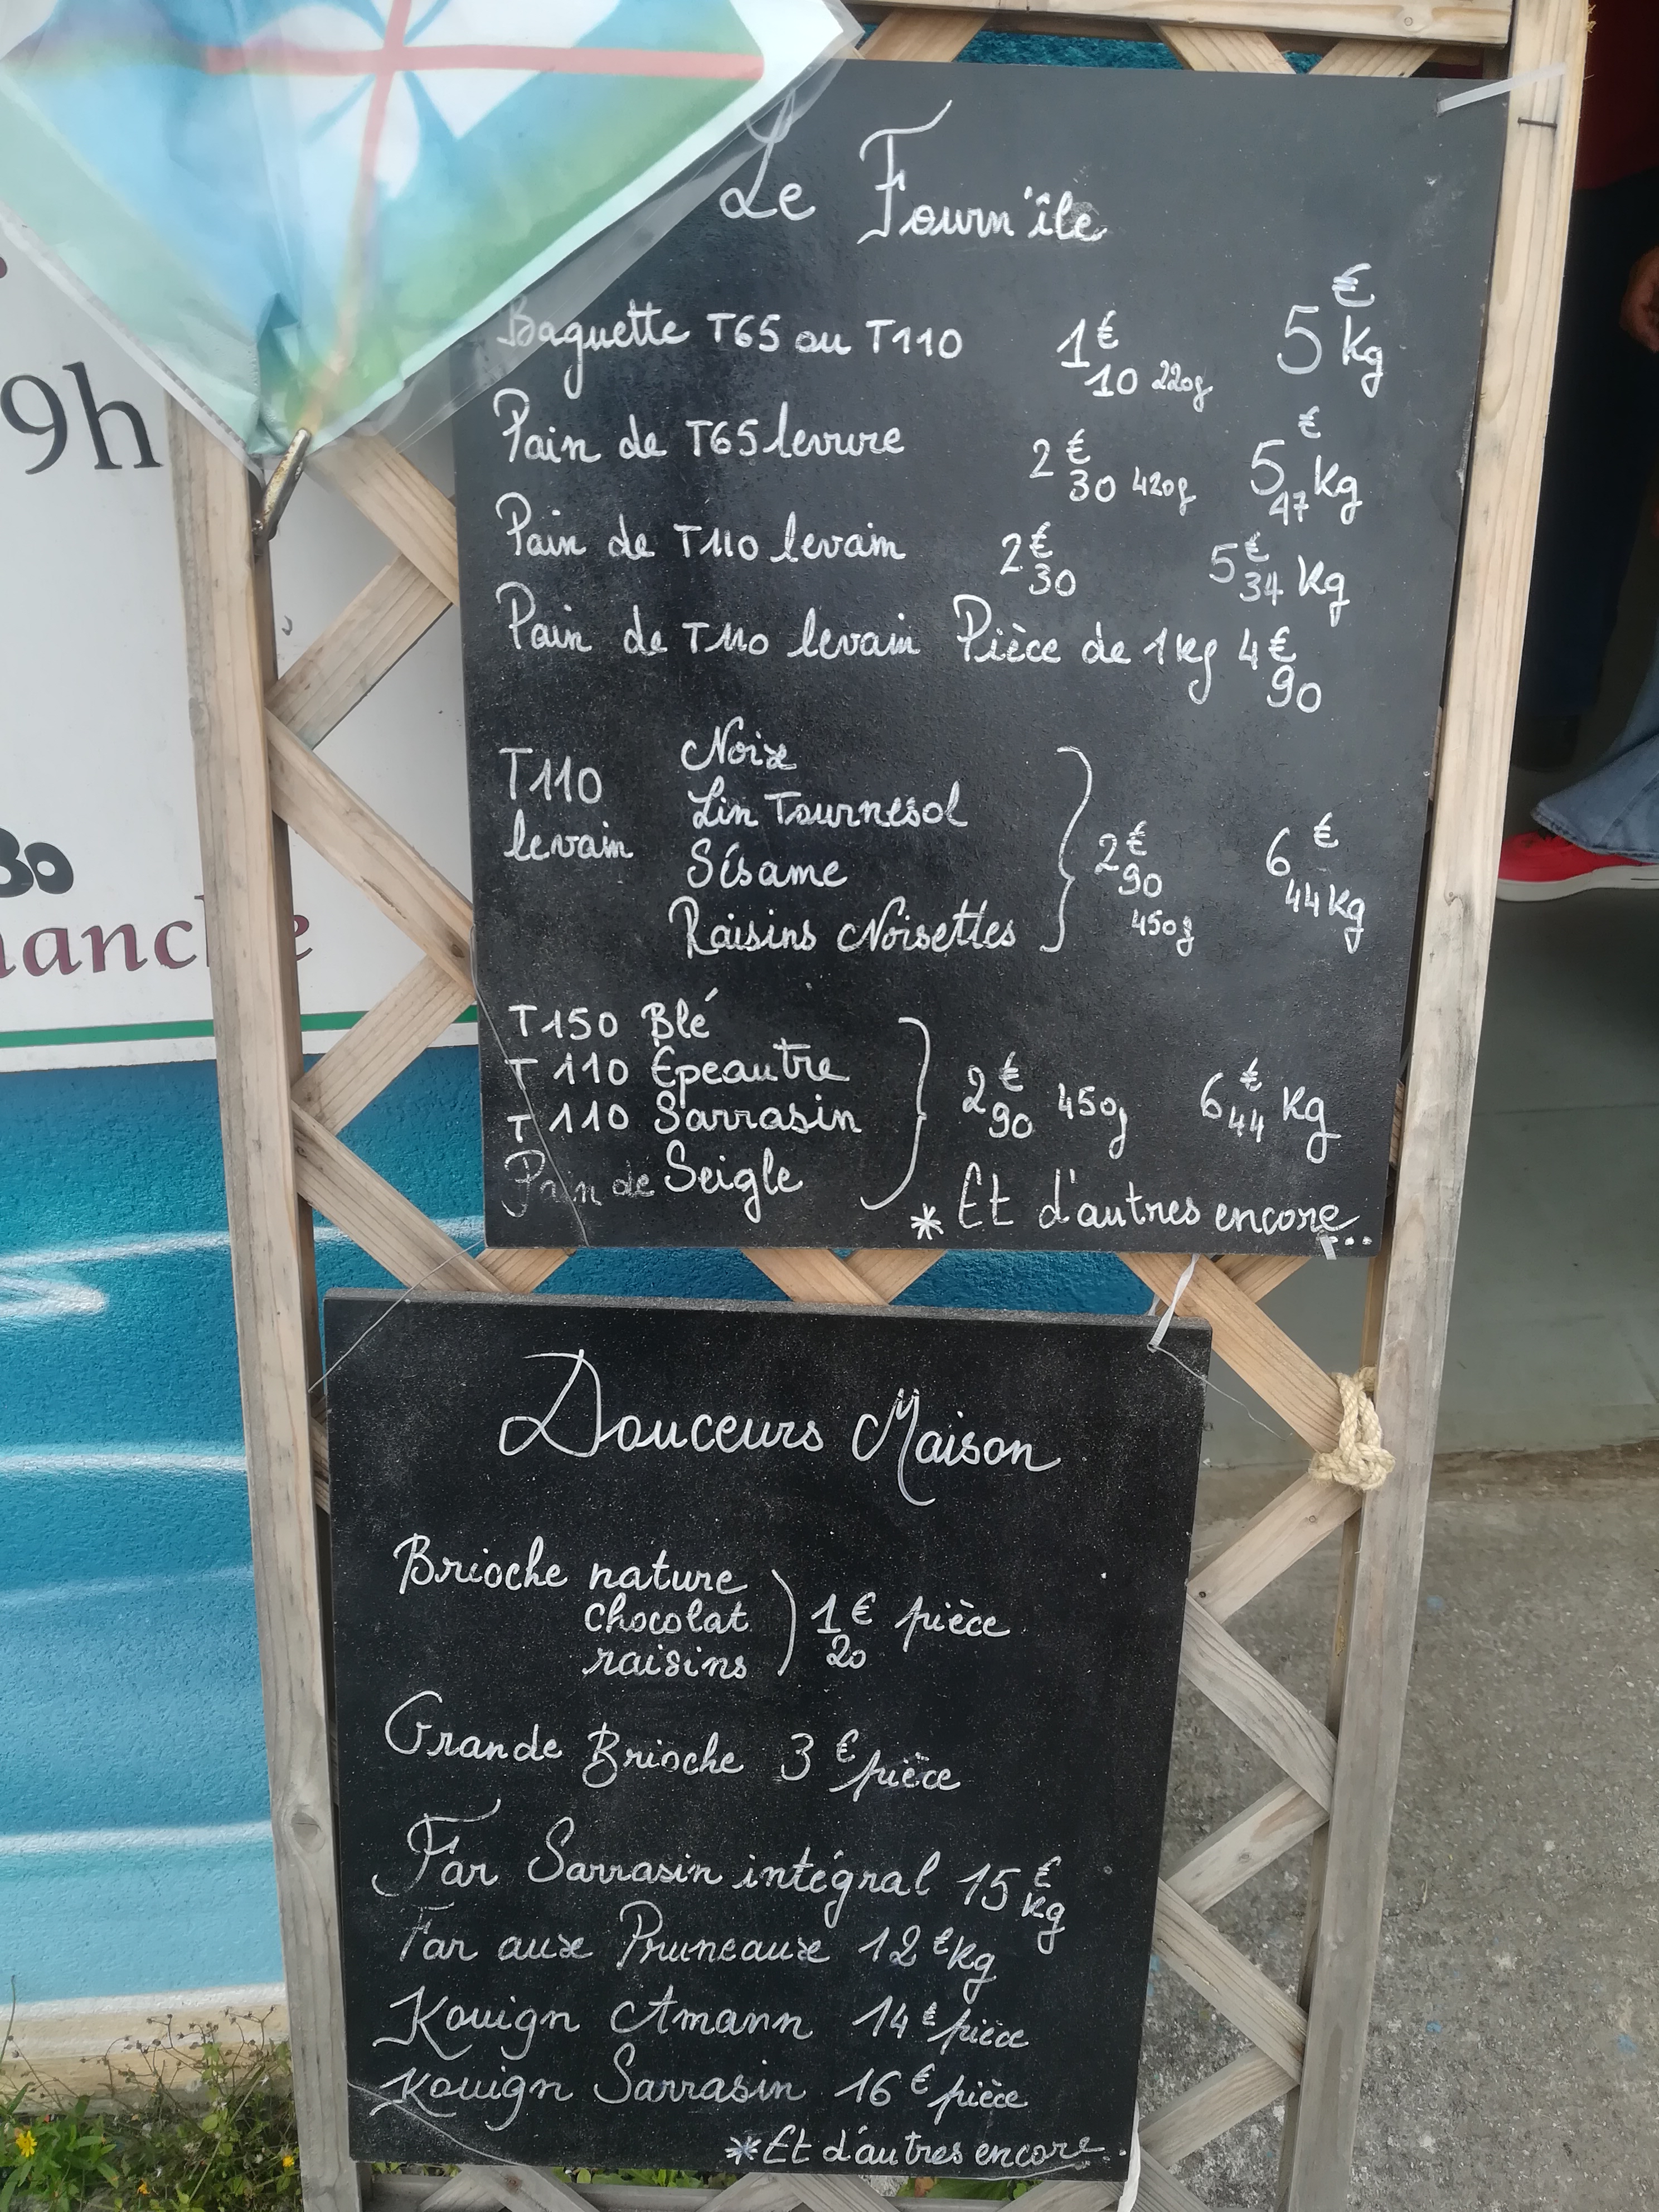 9h
30
Le Fourn'île
Baguette T65 ou T110 1€10 220g 5€ kg
Pain de T65 levure 2€30 420g 5€47 kg
Pain de T110 levain 2€30 5€34 kg
Pain de T110 levain Pièce de 1kg 4€90
T110 levain
Noix
Lin Tournesol
Sésame
Raisins Noisettes
2€90 450g 6€44 kg
T150 Blé
T110 Épeautre
T110 Sarrasin
Pain de Seigle
2€90 450g 6€44 kg
* Et d'autres encore...
Douceurs Maison
Brioche nature
chocolat
raisins
1€20 pièce
Grande Brioche 3€ pièce
Far Sarrasin intégral 15€ kg
Far aux Pruneaux 12€ kg
Kouign Amann 14€ pièce
Kouign Sarrasin 16€ pièce
* Et d'autres encore..